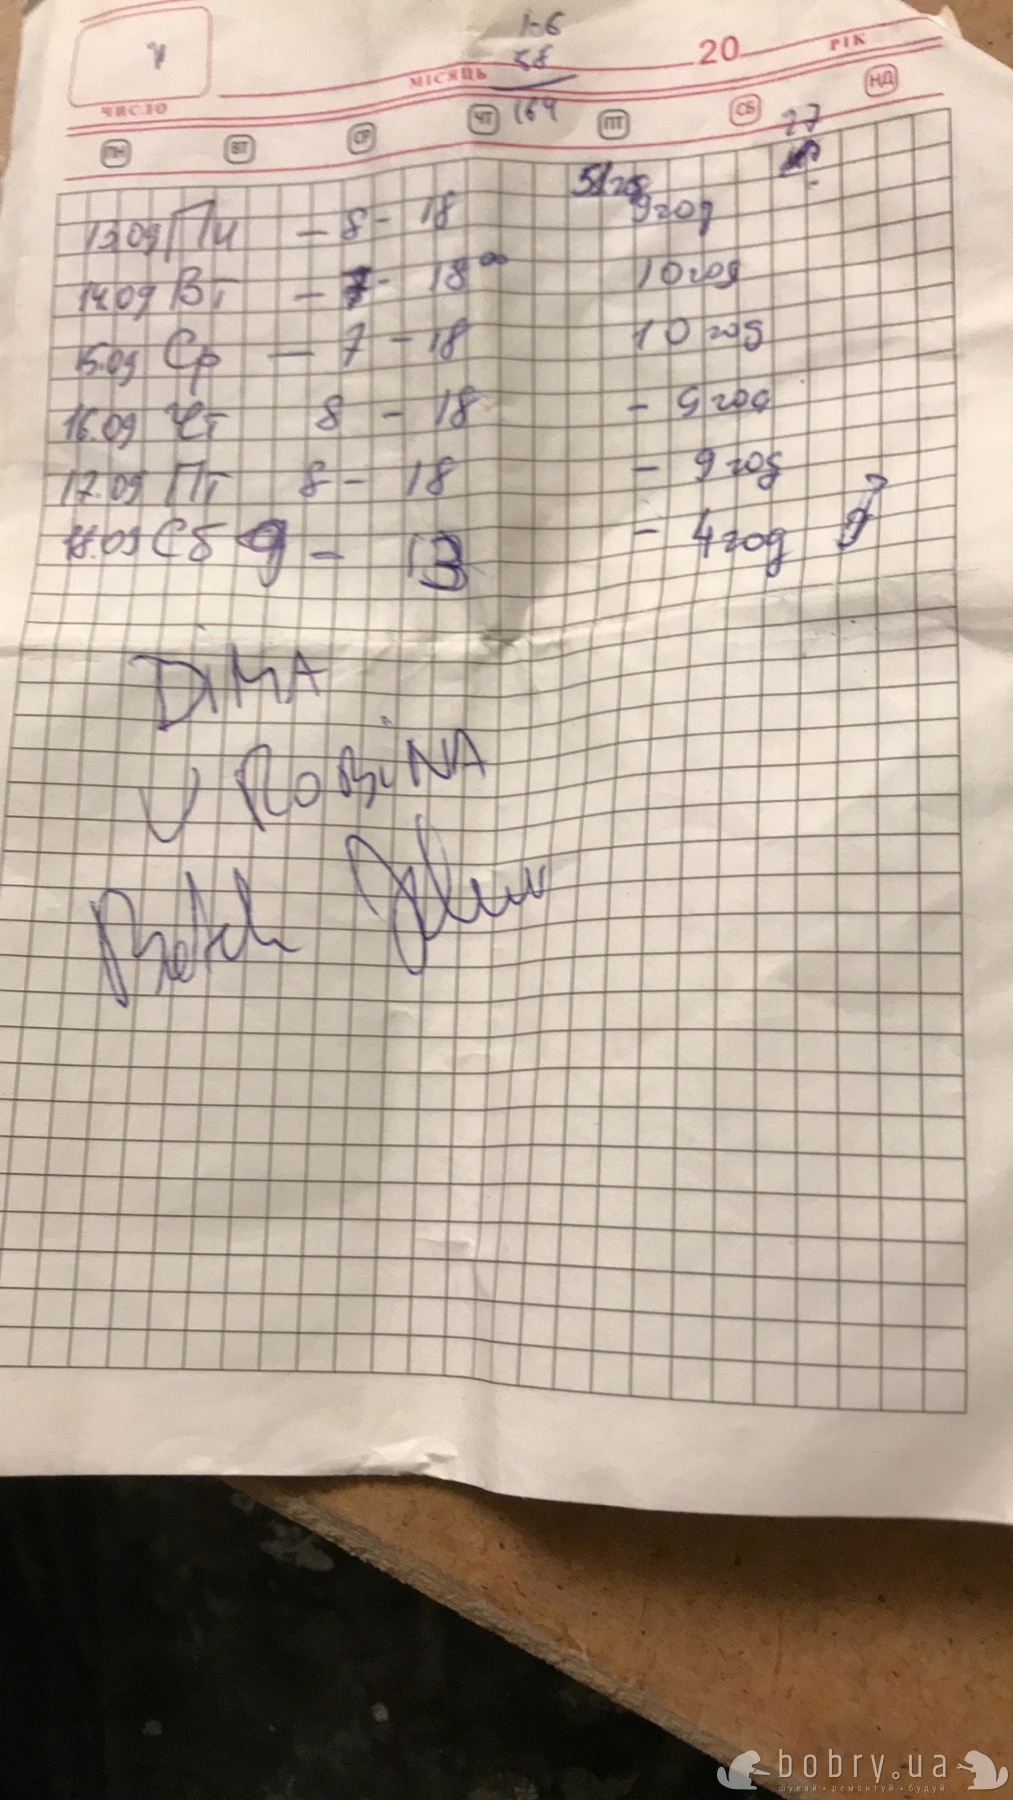 1-6
58
164
20 РІК
МІСЯЦЬ
ЧИСЛО
ПН ВТ СР ЧТ ПТ СБ НД
27
51 год
13.09 Пн - 8 - 18 9 год
14.09 Вт - 7 - 18 00 10 год
15.09 Ср - 7 - 18 10 год
16.09 Чт 8 - 18 - 9 год
17.09 Пт 8 - 18 - 9 год
18.09 Сб 9 - 13 - 4 год
DiMA
V RoBiNA
bobry.ua
шукай • ремонтуй • будуй